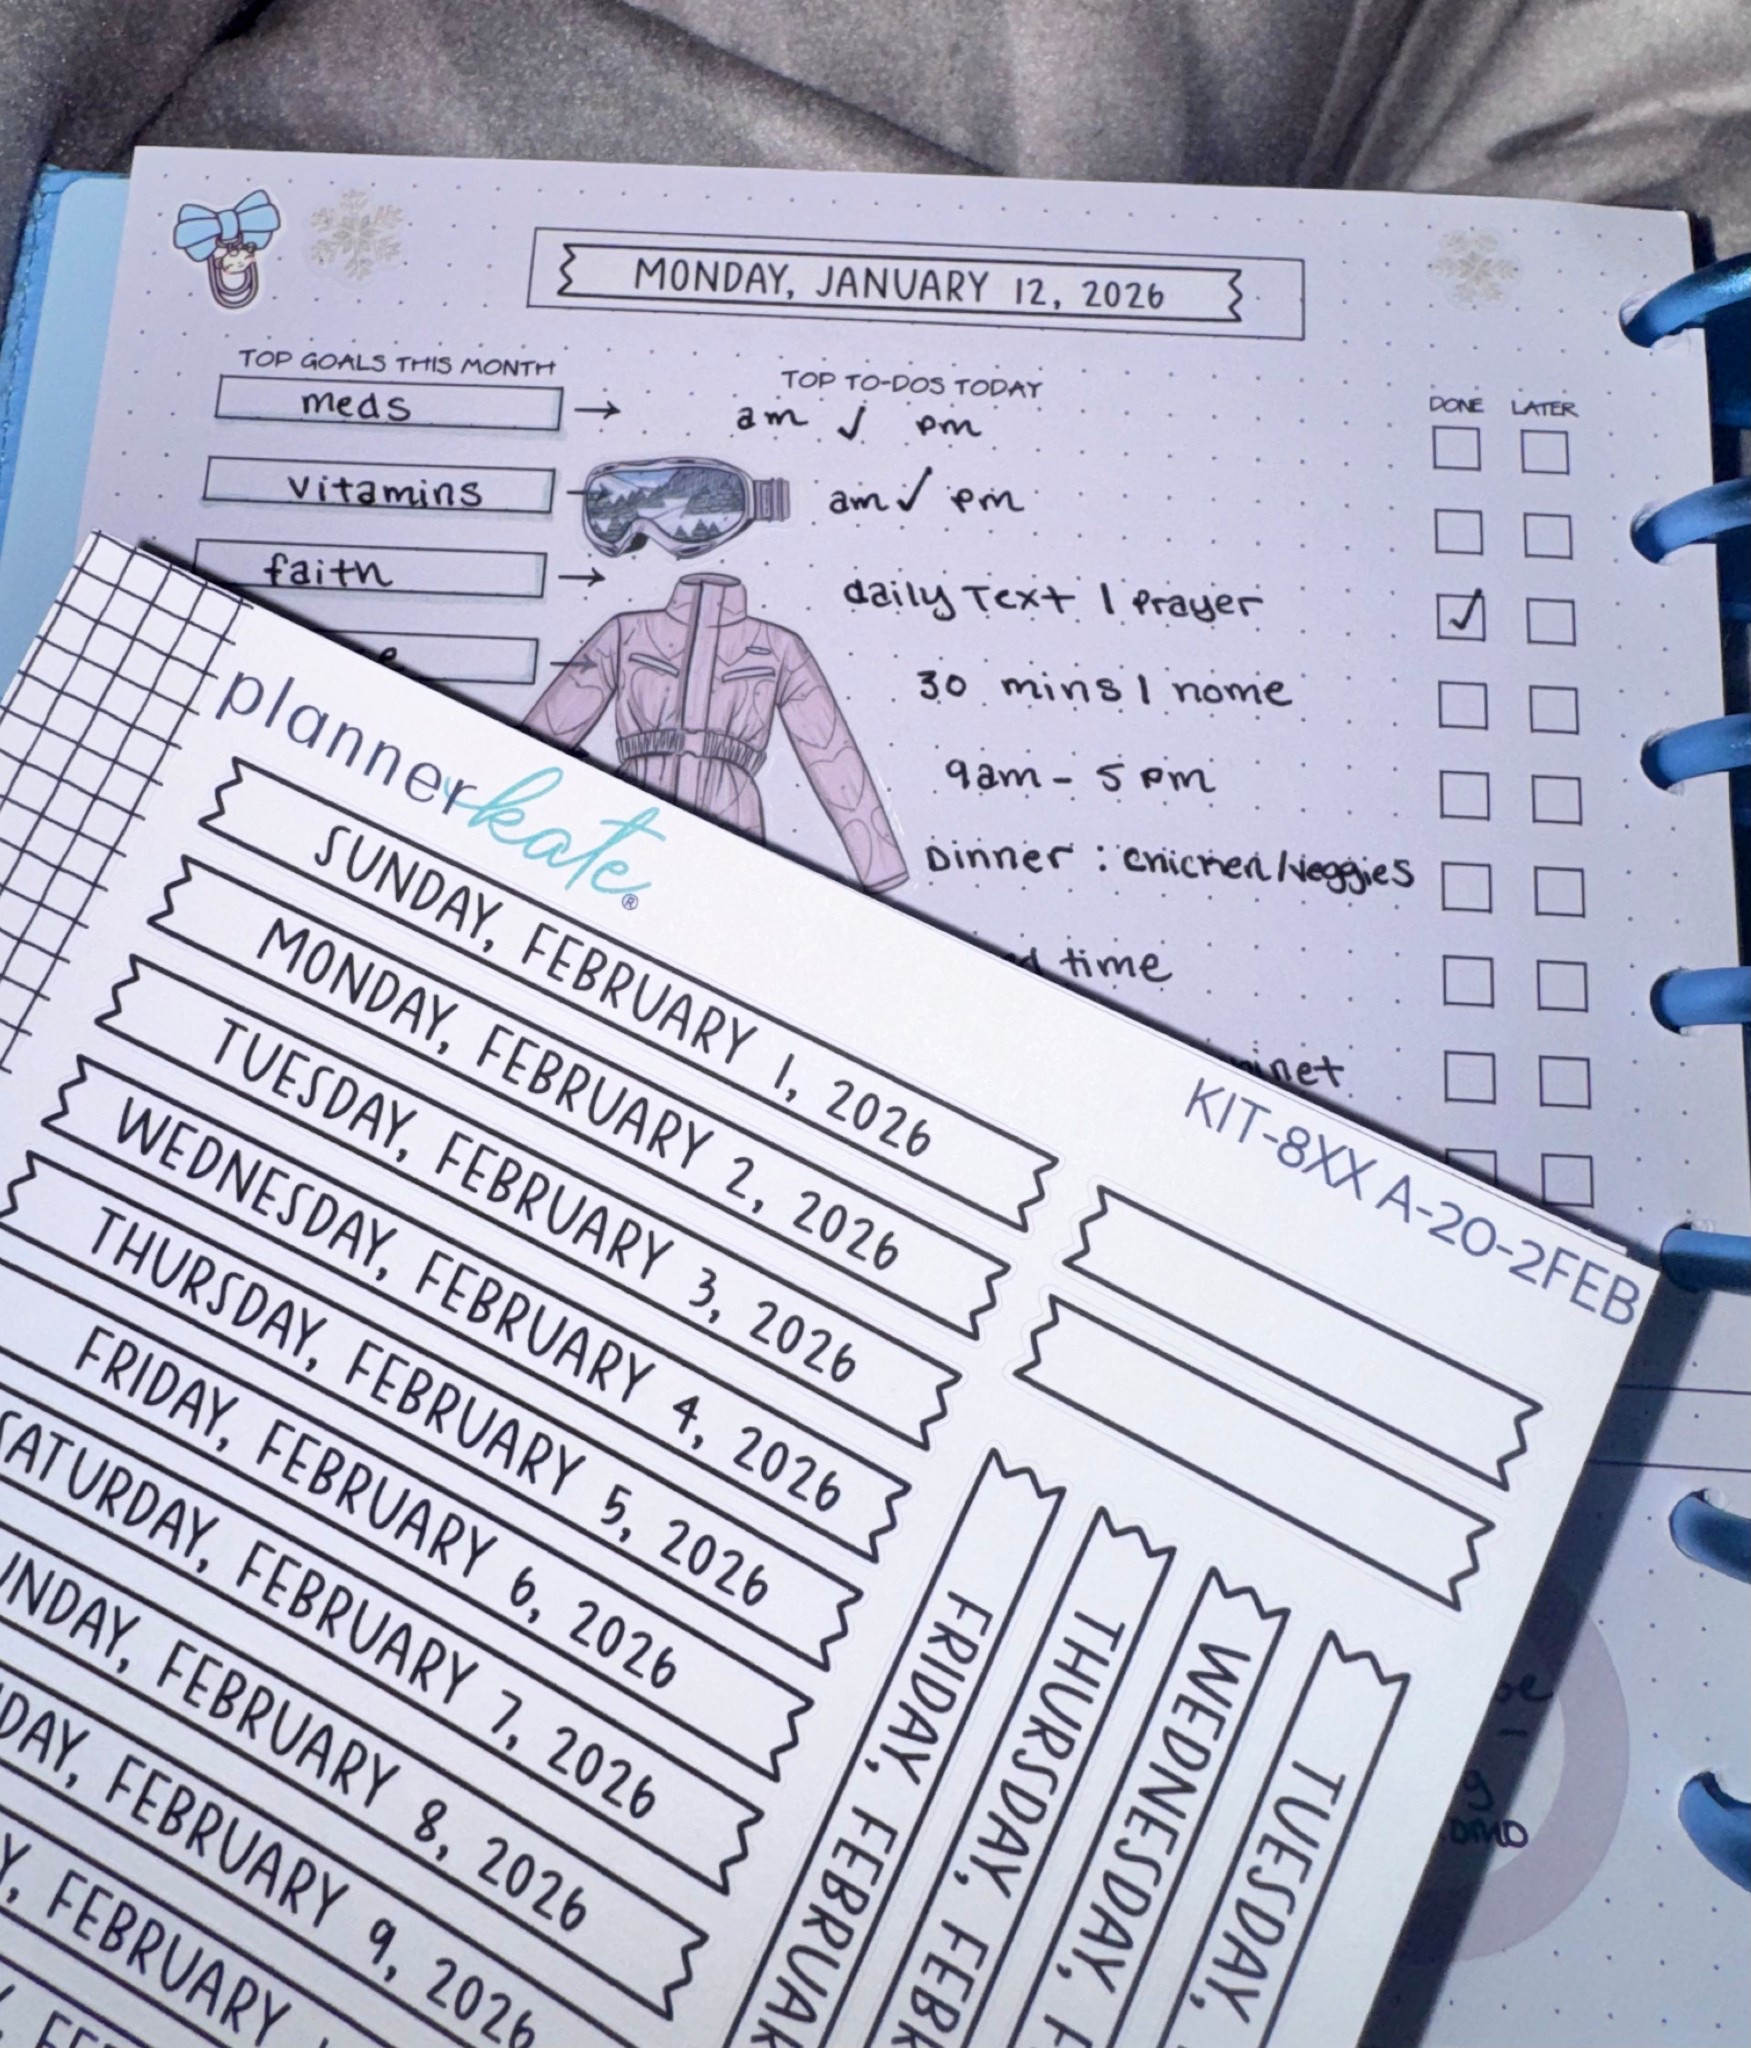 MONDAY, JANUARY 12, 2026
TOP GOALS THIS MONTH
TOP TO-DOS TODAY
DONE LATER
meds
am ✓ pm
vitamins
am ✓ pm
faith
daily Text | Prayer
30 mins | home
9am - 5 pm
Dinner : chicken/veggies
time
plannerkate®
KIT-8XX A-20-2FEB
SUNDAY, FEBRUARY 1, 2026
MONDAY, FEBRUARY 2, 2026
TUESDAY, FEBRUARY 3, 2026
WEDNESDAY, FEBRUARY 4, 2026
THURSDAY, FEBRUARY 5, 2026
FRIDAY, FEBRUARY 6, 2026
SATURDAY, FEBRUARY 7, 2026
UNDAY, FEBRUARY 8, 2026
DAY, FEBRUARY 9, 2026
Y, FEBRUARY
FRIDAY, FEBRUAR
THURSDAY, FEBR
WEDNESDAY, F
TUESDAY,